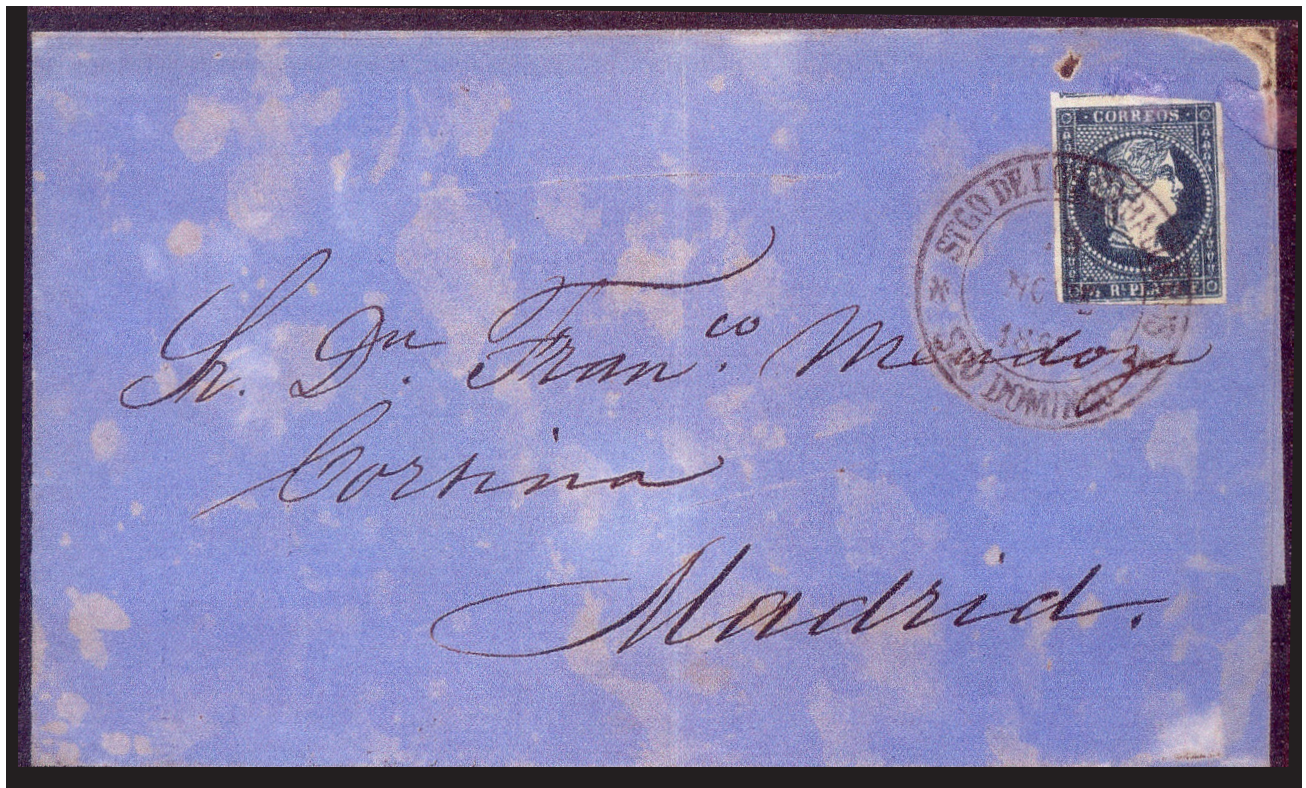 CORREOS
Rl PLATA F
STGO DE
NO
18
STO DOMINGO
Sr. Dn. Franco. Mendoza
Cortina
Madrid.